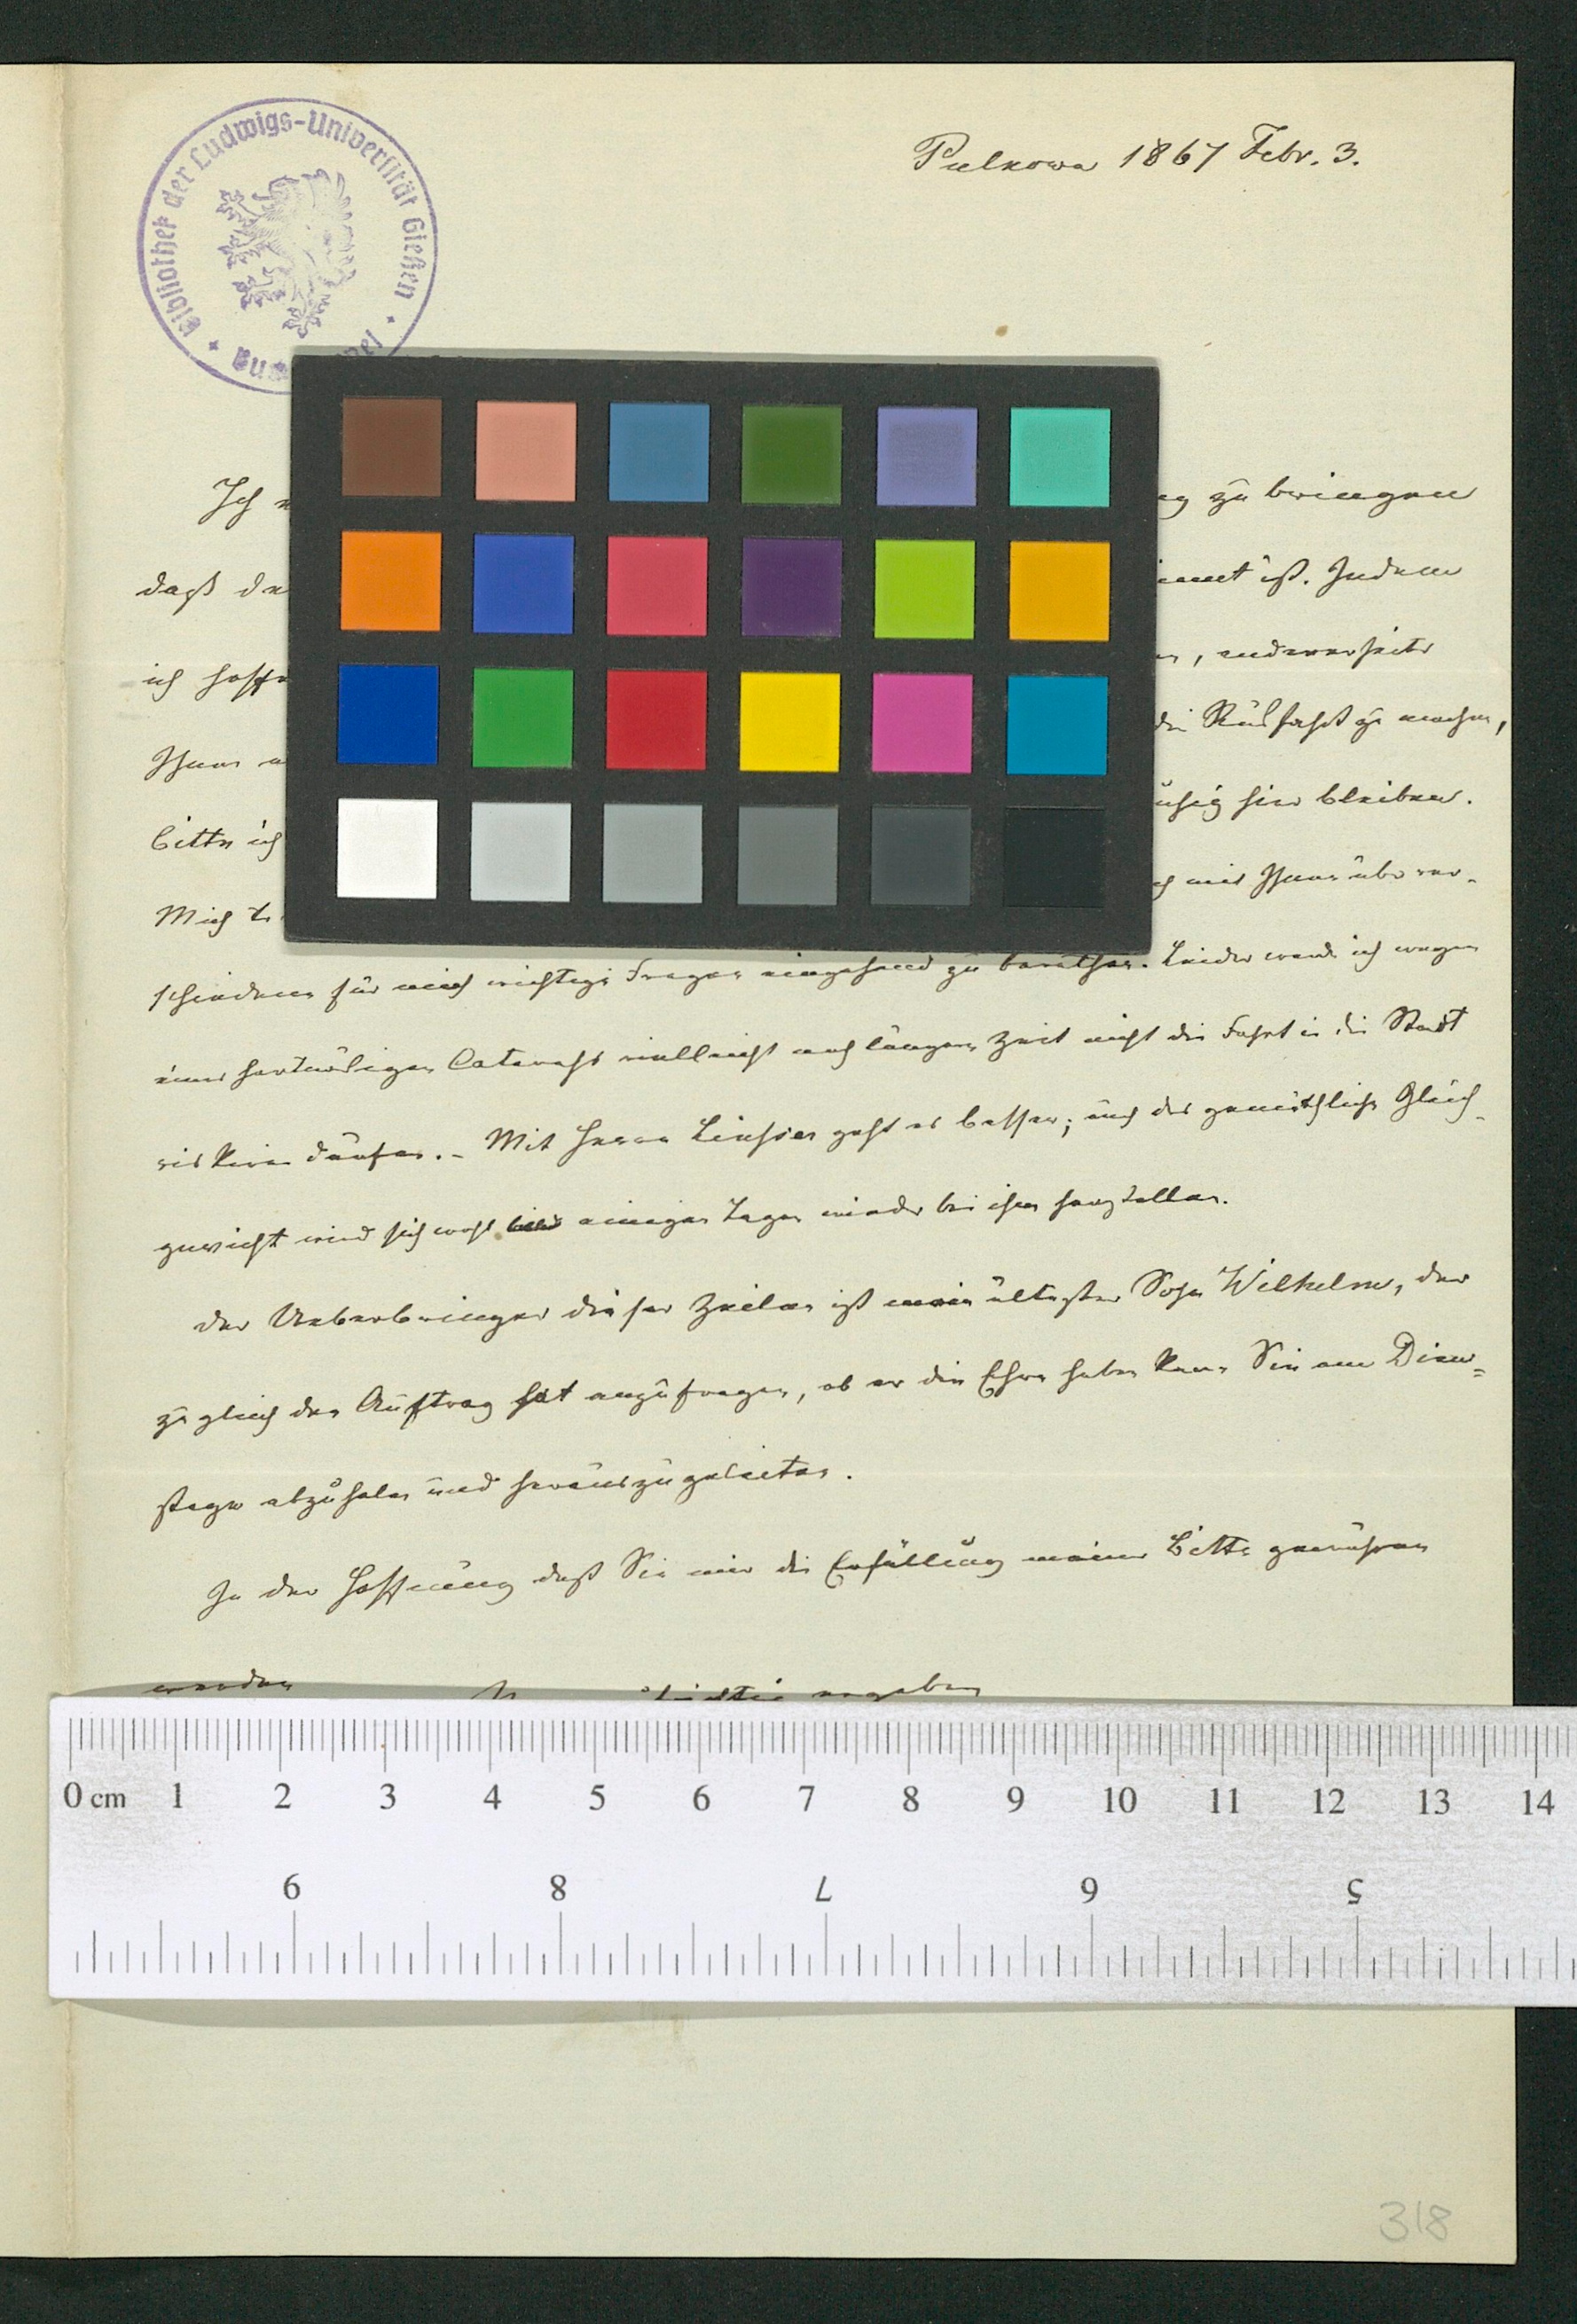 Bibliothek der Ludwigs-Universität Gießen
Pulkowa 1867 Febr. 3.
Ich
zu bringen
daß
ist. Indem
ich hoffe
, anderseits
Ihnen
die Rückfahrt zu machen,
bitte ich
hier bleiben.
Mich
mit Ihnen über ver-
schiedene für mich wichtige Fragen eingehend zu berathen. Leider werde ich wegen
eines hartnäckigen Catarrhs vielleicht noch längere Zeit nicht die Fahrt in die Stadt
riskiren dürfen. – Mit Herrn Linsser geht es besser; auch das gemüthliche Gleich-
gewicht wird sich wohl einigen Tagen wieder bei ihm herstellen.
Der Ueberbringer dieser Zeilen ist mein ältester Sohn Wilhelm, der
zugleich den Auftrag hat anzufragen, ob er die Ehre haben kann Sie am Dien-
stage abzuholen und herauszugeleiten.
In der Hoffnung daß Sie mir die Erfüllung meiner Bitte gewähren
werden
ergeben
0 cm 1 2 3 4 5 6 7 8 9 10 11 12 13 14
9 8 7 6 5
318